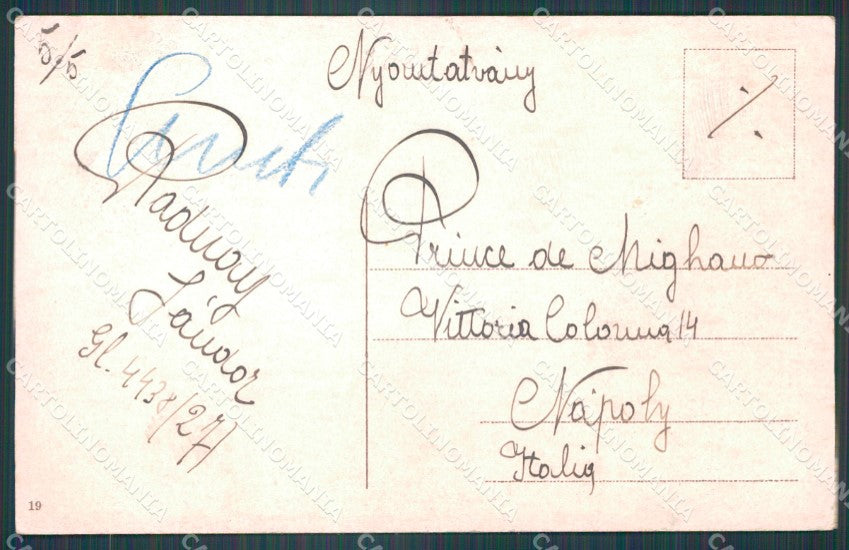 Nyomtatvány
Radnay
Sándor
Gl. 4438/27
Prince de Mighano
Vittoria Colonna 14
Nápoly
Italia
19
CARTOLINOMANIA